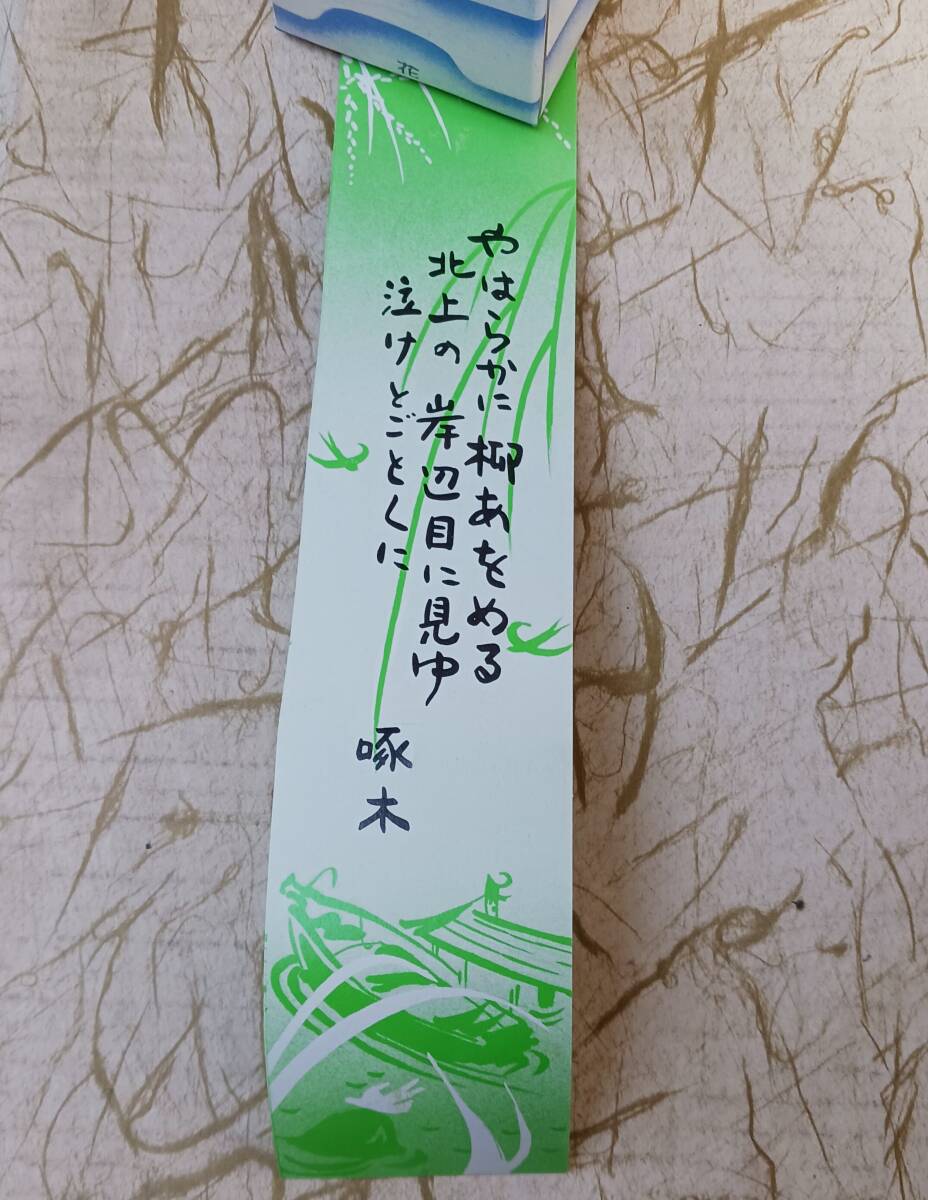 花
やはらかに柳あをめる
北上の岸辺目に見ゆ
泣けとごとくに
啄木